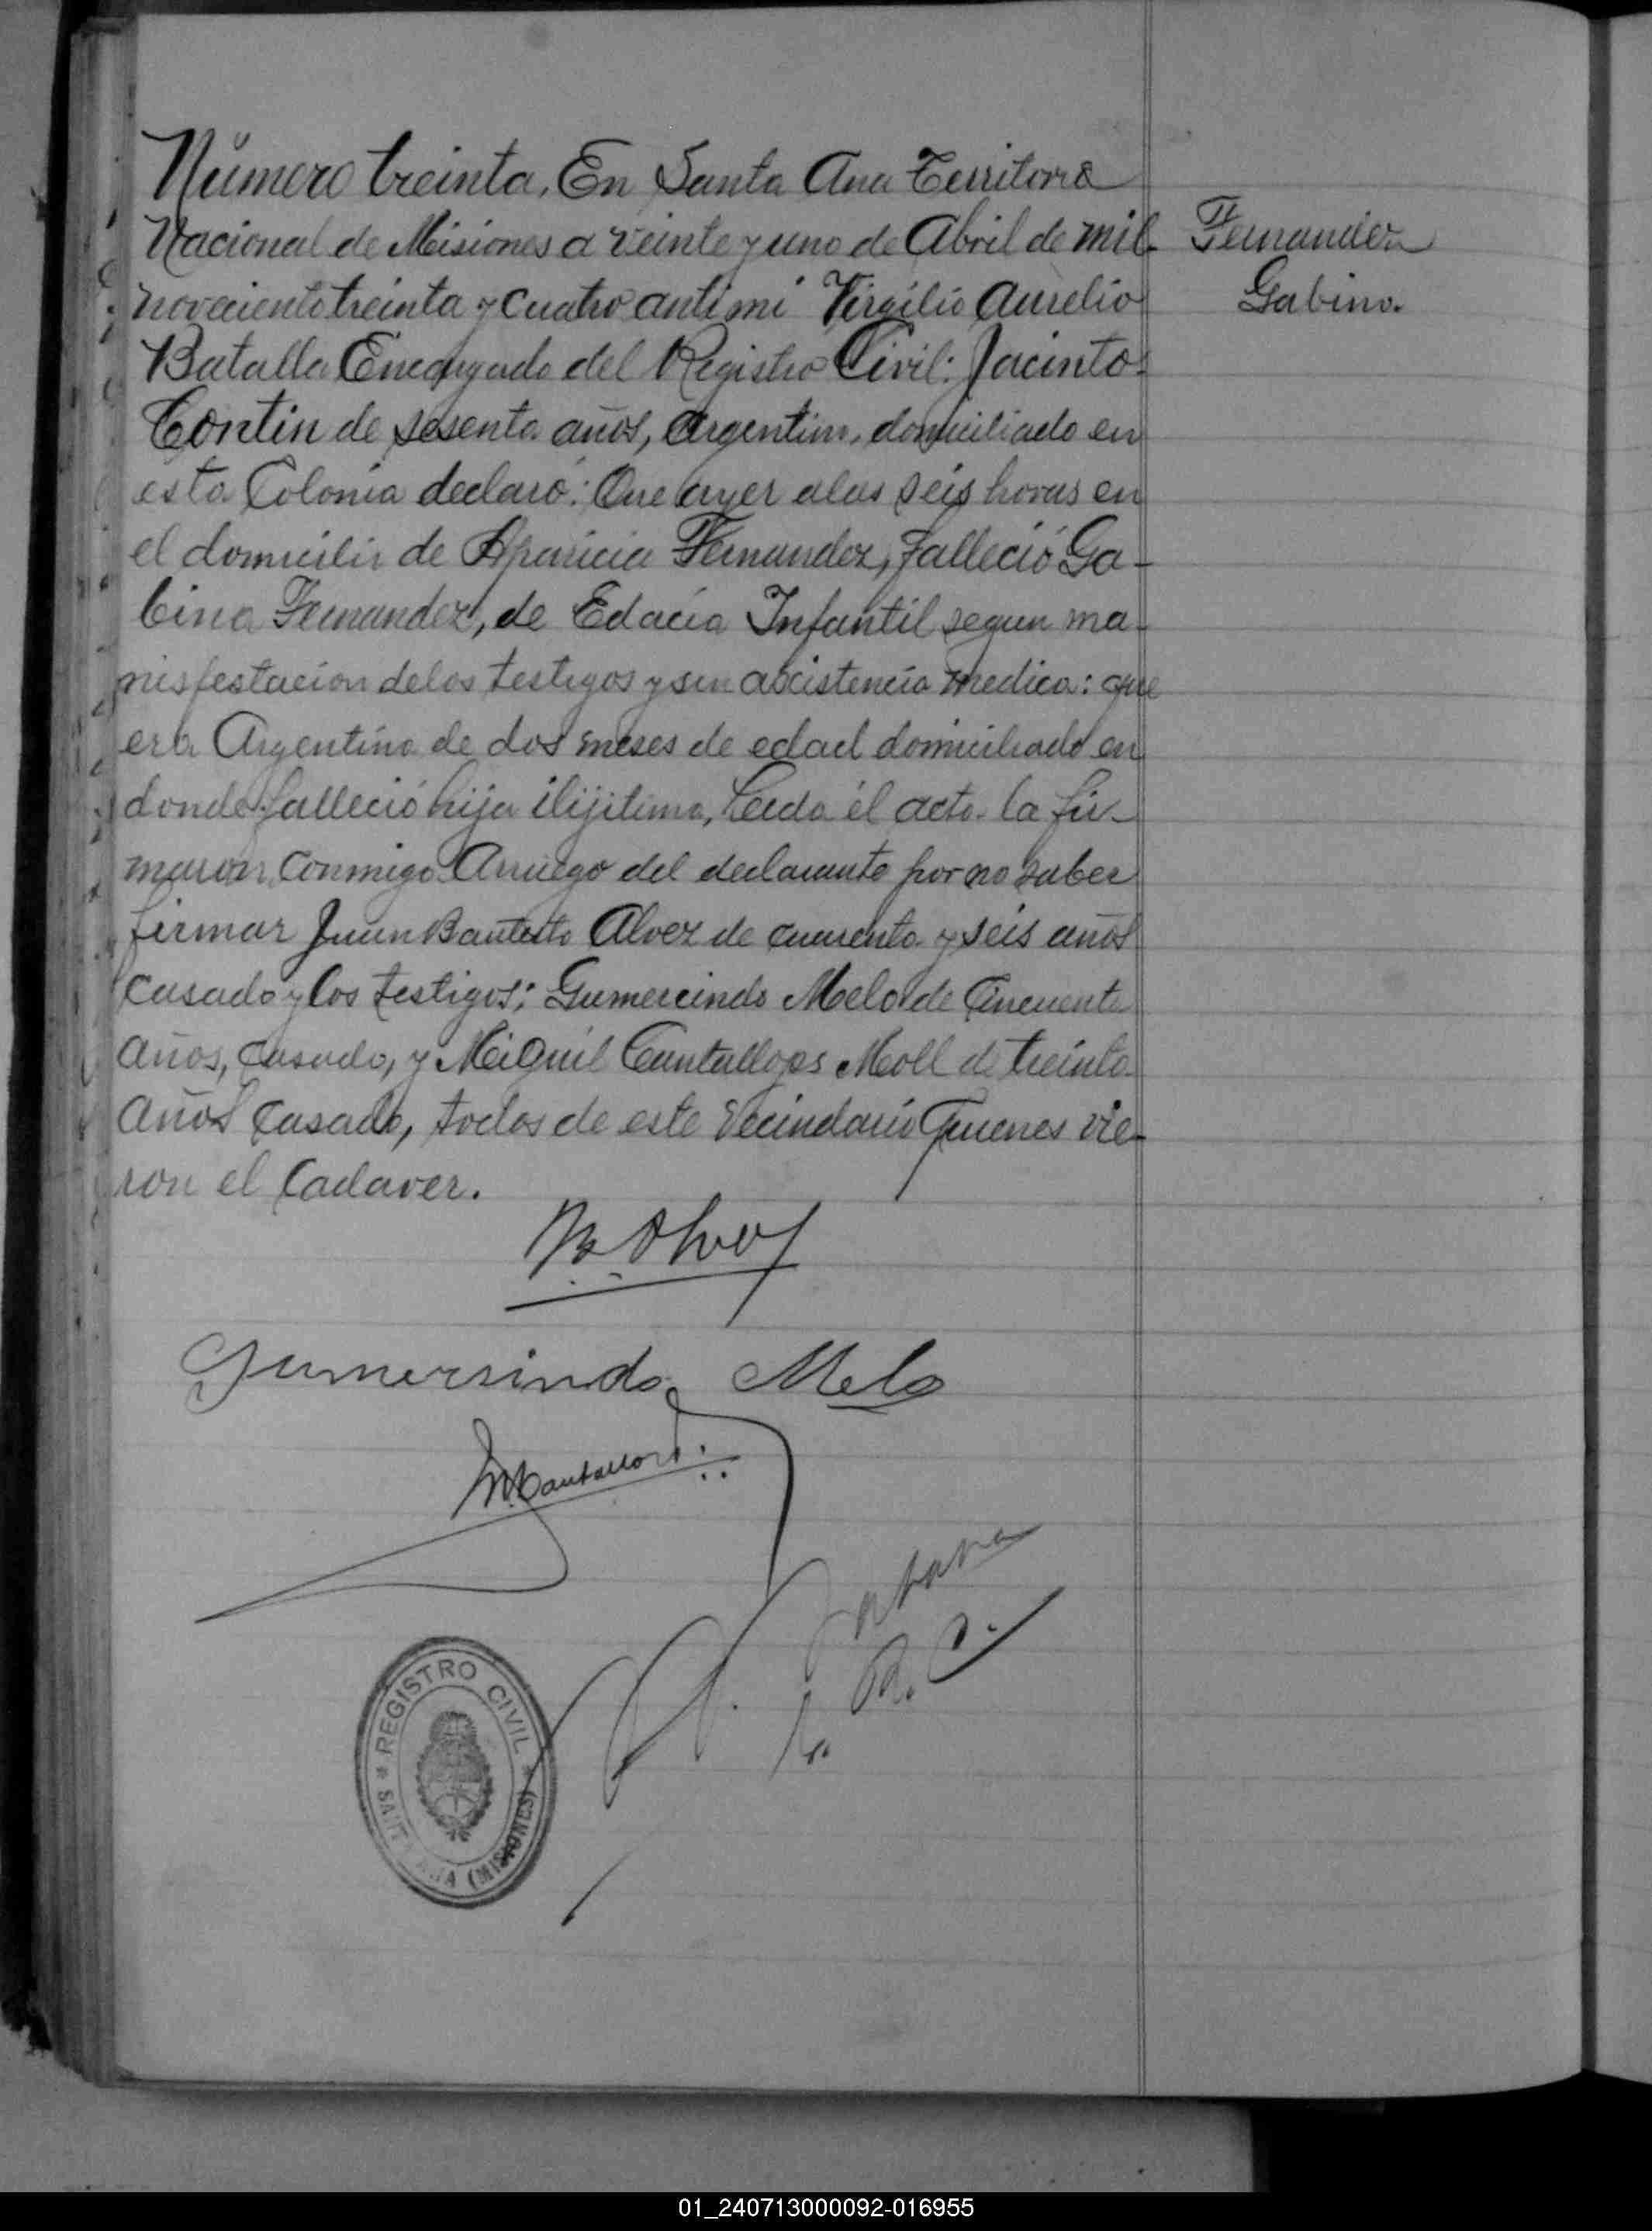 Número treinta. En Santa Ana Territorio
Nacional de Misiones a veinte y uno de Abril de mil
noveciento treinta y cuatro anti mi Virgilio Aurelio
Batalla Encargado del Registro Civil: Jacinto
Contin de sesenta años, Argentino, domiciliado en
esta Colonia declaró: Que ayer a las seis horas en
el domicilio de Aparicia Fernandez, falleció Ga-
bina Fernandez, de Edacia Infantil segun ma-
nisfestacion de los testigos y sin abcistencia medica: que
era Argentina de dos meses de edad domiciliado en
donde falleció hija ilijitima, Leida el acta la fir-
maron conmigo Arruego del declarante por no saber
firmar Juan Bautista Alvez de cuarenta y seis años
casado y los testigos: Gumercindo Melo de Cincuenta
años, casado, y Miguil Cantallops Moll de treinta
años casado, todos de este Vecindario Quienes vie-
ron el Cadaver.
Fernandez
Gabina.
B Alvez
Gumersindo Melo
M. Cantallops
E. R. C.
REGISTRO CIVIL
SANTA ANA (MISIONES)
01_240713000092-016955